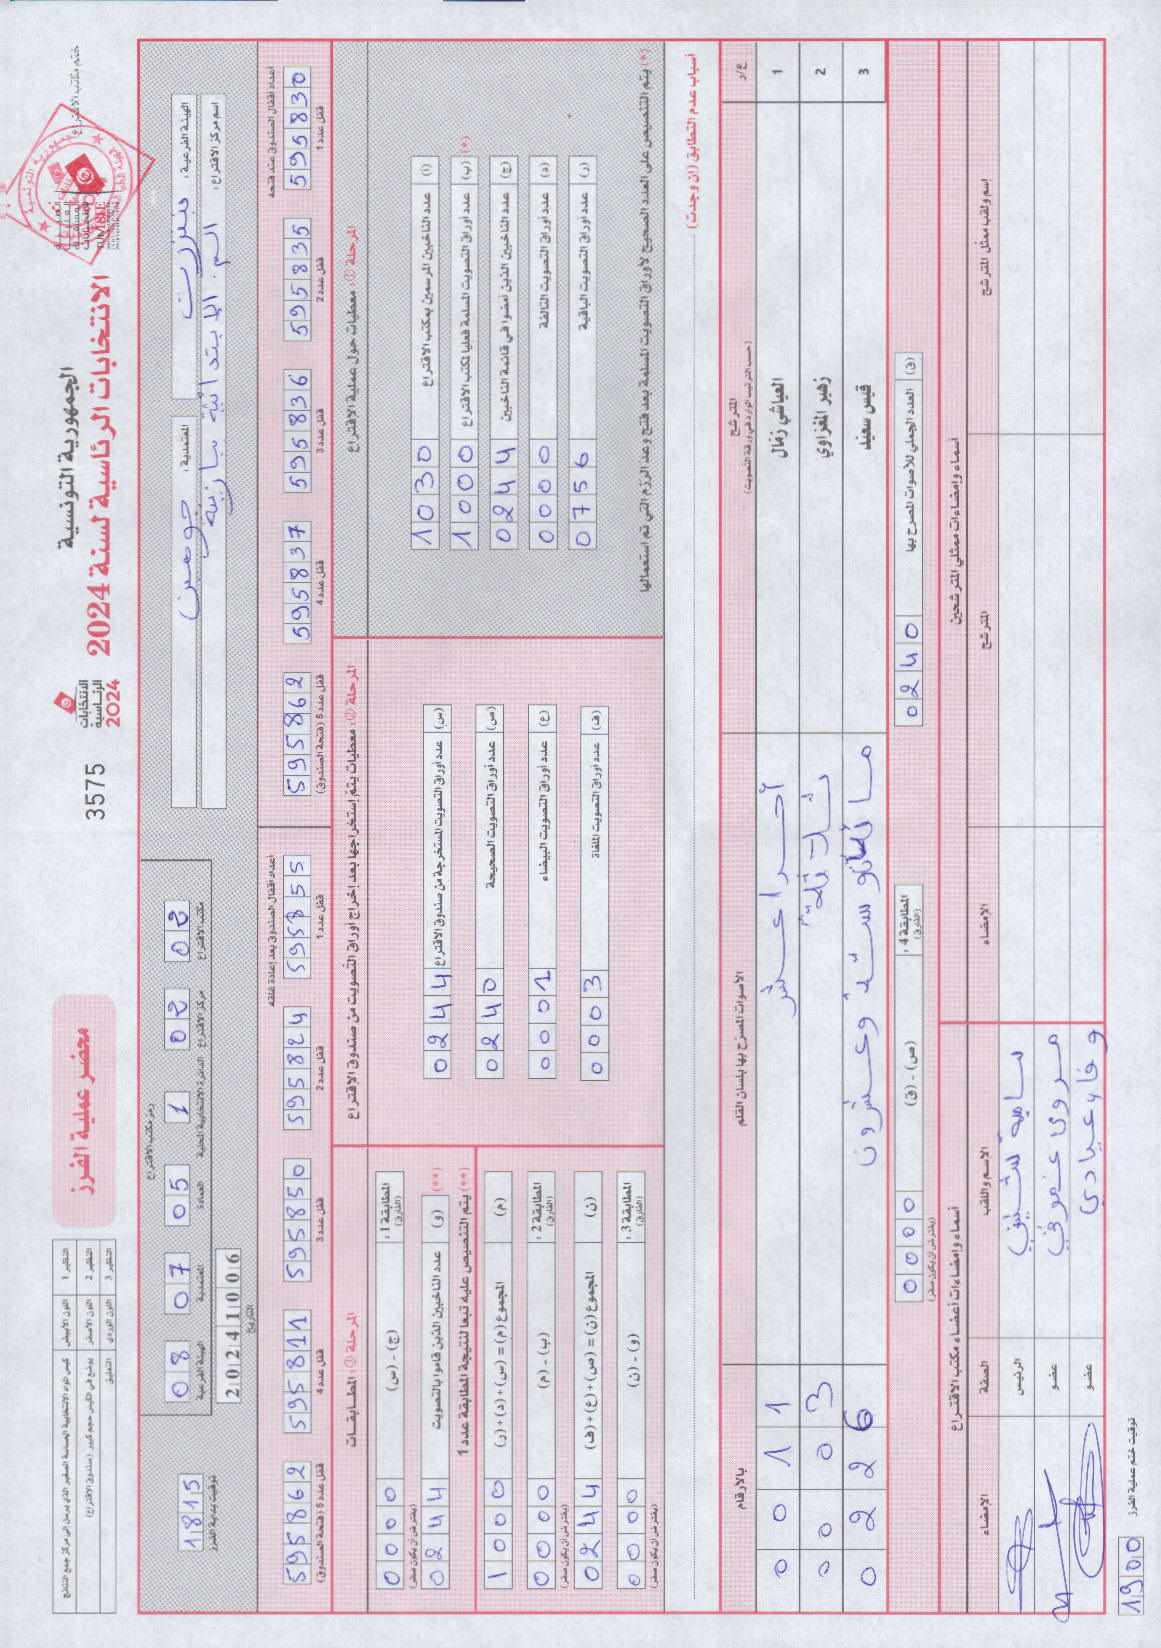 الجمهورية التونسية
الانتخابات الرئاسية لسنة 2024
ختم مكتب الاقتراع
الانتخابات
الرئاسية
2024
3575
محضر عملية الفرز
النظير 1 اللون الأبيض
النظير 2 اللون الأصفر يوضع في الكيس حجم كبير (صندوق الاقتراع)
النظير 3 اللون الوردي التعليق
الهيئة الفرعية: بنزرت
المعتمدية: جومين
اسم مركز الاقتراع:
رمز مكتب الاقتراع
08 07 05 1 02 02
الهيئة الفرعية المعتمدية العمادة الدائرة الانتخابية المحلية مركز الاقتراع مكتب الاقتراع
20241006
التاريخ
1815
توقيت بداية الفرز
أعداد أقفال الصندوق عند فتحه
595830 595835 595836 595837 595862
قفل عدد 1 قفل عدد 2 قفل عدد 3 قفل عدد 4 قفل عدد 5 (فتحة الصندوق)
أعداد أقفال الصندوق بعد إعادة غلقه
595855 595824 595850 595811 595862
قفل عدد 1 قفل عدد 2 قفل عدد 3 قفل عدد 4 قفل عدد 5 (فتحة الصندوق)
المرحلة ①: معطيات حول عملية الاقتراع
(أ) عدد الناخبين المرسمين بمكتب الاقتراع 1030
(ب) عدد أوراق التصويت المسلمة فعليا لمكتب الاقتراع 1000 (*)
(ج) عدد الناخبين الذين أمضوا في قائمة الناخبين 0244
(د) عدد أوراق التصويت التالفة 0000
(ر) عدد أوراق التصويت الباقية 0756
(*) يتم التنصيص على العدد الصحيح لأوراق التصويت المسلمة بعد فتح وعد الرزم التي تم استعمالها
المرحلة ②: معطيات يتم إستخراجها بعد إخراج أوراق التصويت من صندوق الاقتراع
(س) عدد أوراق التصويت المستخرجة من صندوق الاقتراع 0244
(ص) عدد أوراق التصويت الصحيحة 0240
(ع) عدد أوراق التصويت البيضاء 0001
(ف) عدد أوراق التصويت الملغاة 0003
المرحلة ③: المطابقات
المطابقة 1: (الفارق) (ج) - (س) 0000 (يفترض أن يكون صفر)
(**) (و) عدد الناخبين الذين قاموا بالتصويت 0244
(**) يتم التنصيص عليه تبعا لنتيجة المطابقة عدد 1
(م) المجموع (م) = (س) + (د) + (ر) 1000
المطابقة 2: (الفارق) (ب) - (م) 0000 (يفترض أن يكون صفر)
(ن) المجموع (ن) = (ص) + (ع) + (ف) 0244
المطابقة 3: (الفارق) (و) - (ن) 0000 (يفترض أن يكون صفر)
أسباب عدم التطابق (إن وجدت)
ع/ر المترشح (حسب الترتيب الوارد في ورقة التصويت) الأصوات المصرح بها بلسان القلم بالأرقام
1 العياشي زمال أحد عشر 0011
2 زهير المغزاوي ثلاثة 0003
3 قيس سعيد مائتان وستة وعشرون 0226
(ق) العدد الجملي للأصوات المصرح بها 0240
المطابقة 4: (الفارق) (ص) - (ق) 0000 (يفترض أن يكون صفر)
أسماء وإمضاءات ممثلي المترشحين
إسم ولقب ممثل المترشح المترشح الإمضاء
أسماء وإمضاءات أعضاء مكتب الاقتراع
الاسم واللقب الصفة الإمضاء
الرئيس
عضو
وفاء عيادي عضو
توقيت ختم عملية الفرز 1900